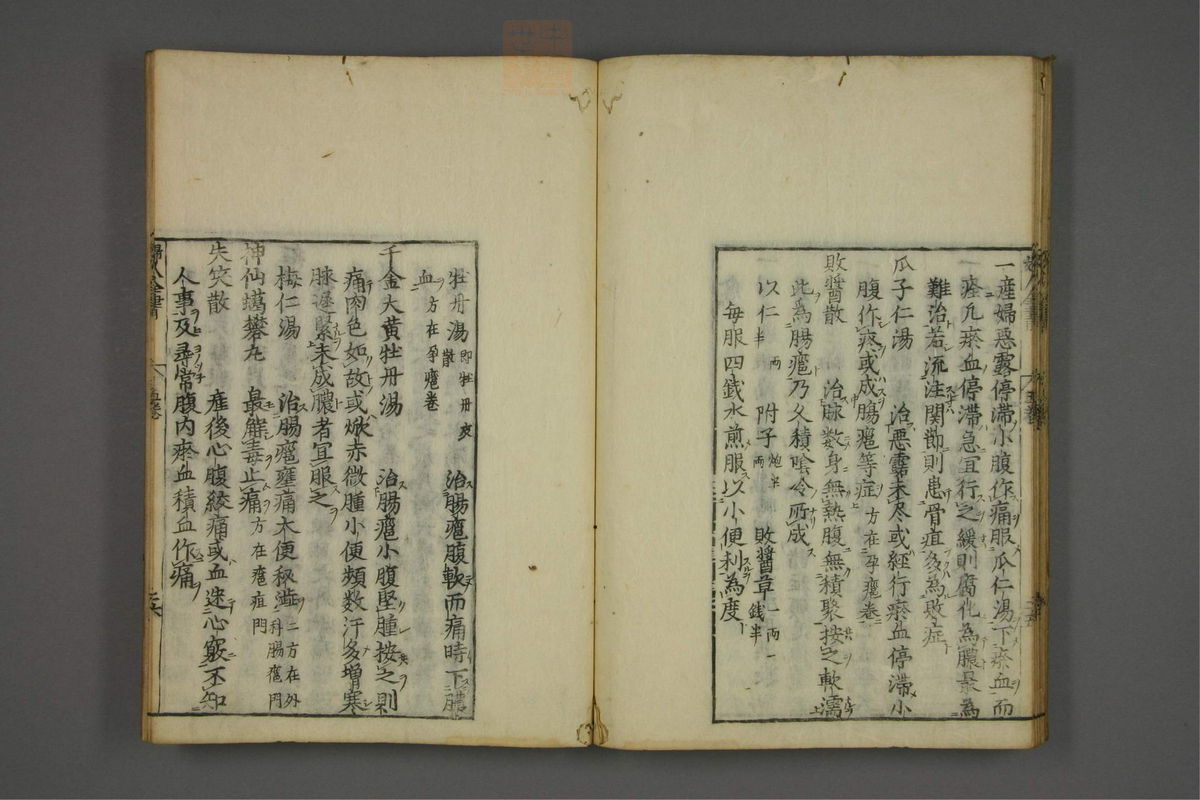 一産婦惡露停滯小腹作痛服瓜仁湯下瘀血而
痊凡瘀血停滯急宜行之緩則腐化為膿最為
難治若流注関節則患骨疽多為敗症
瓜子仁湯 治惡露未尽或經行瘀血停滯小
腹作疼或成膓癰等症方在孕癰卷
敗醬散 治脉数身無熱腹無積聚按之軟濡
此爲腸癰乃久積陰冷所成
以仁半両 附子炮半両 敗醬草一両一銭半
每服四銭水煎服以小便利為度
牡丹湯即牡丹皮散 治腸癰腹軟而痛時下膿
血方在孕癰卷
千金大黄牡丹湯 治腸癰小腹堅腫按之則
痛肉色如故或焮赤微腫小便頻数汗多增寒
脉遲緊未成膿者宜服之
梅仁湯 治腸癰壅痛大便秘澁二方在外科腸癰門
神仙蠟礬丸 最解毒止痛方在癰疽門
失笑散 産後心腹絞痛或血迷心竅不知
人事及尋常腹内瘀血積血作痛